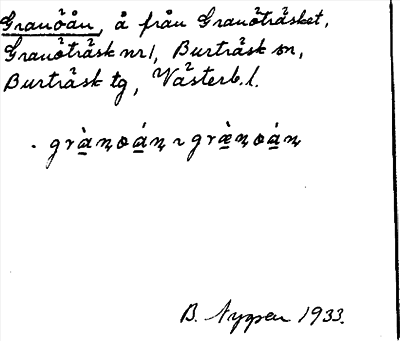 Granöån, å från Granöträsket,
Granöträsk nr 1, Burträsk sn,
Burträsk tg, Västerb. l.
. grànoán ~ grænoán
B. Nygren 1933.